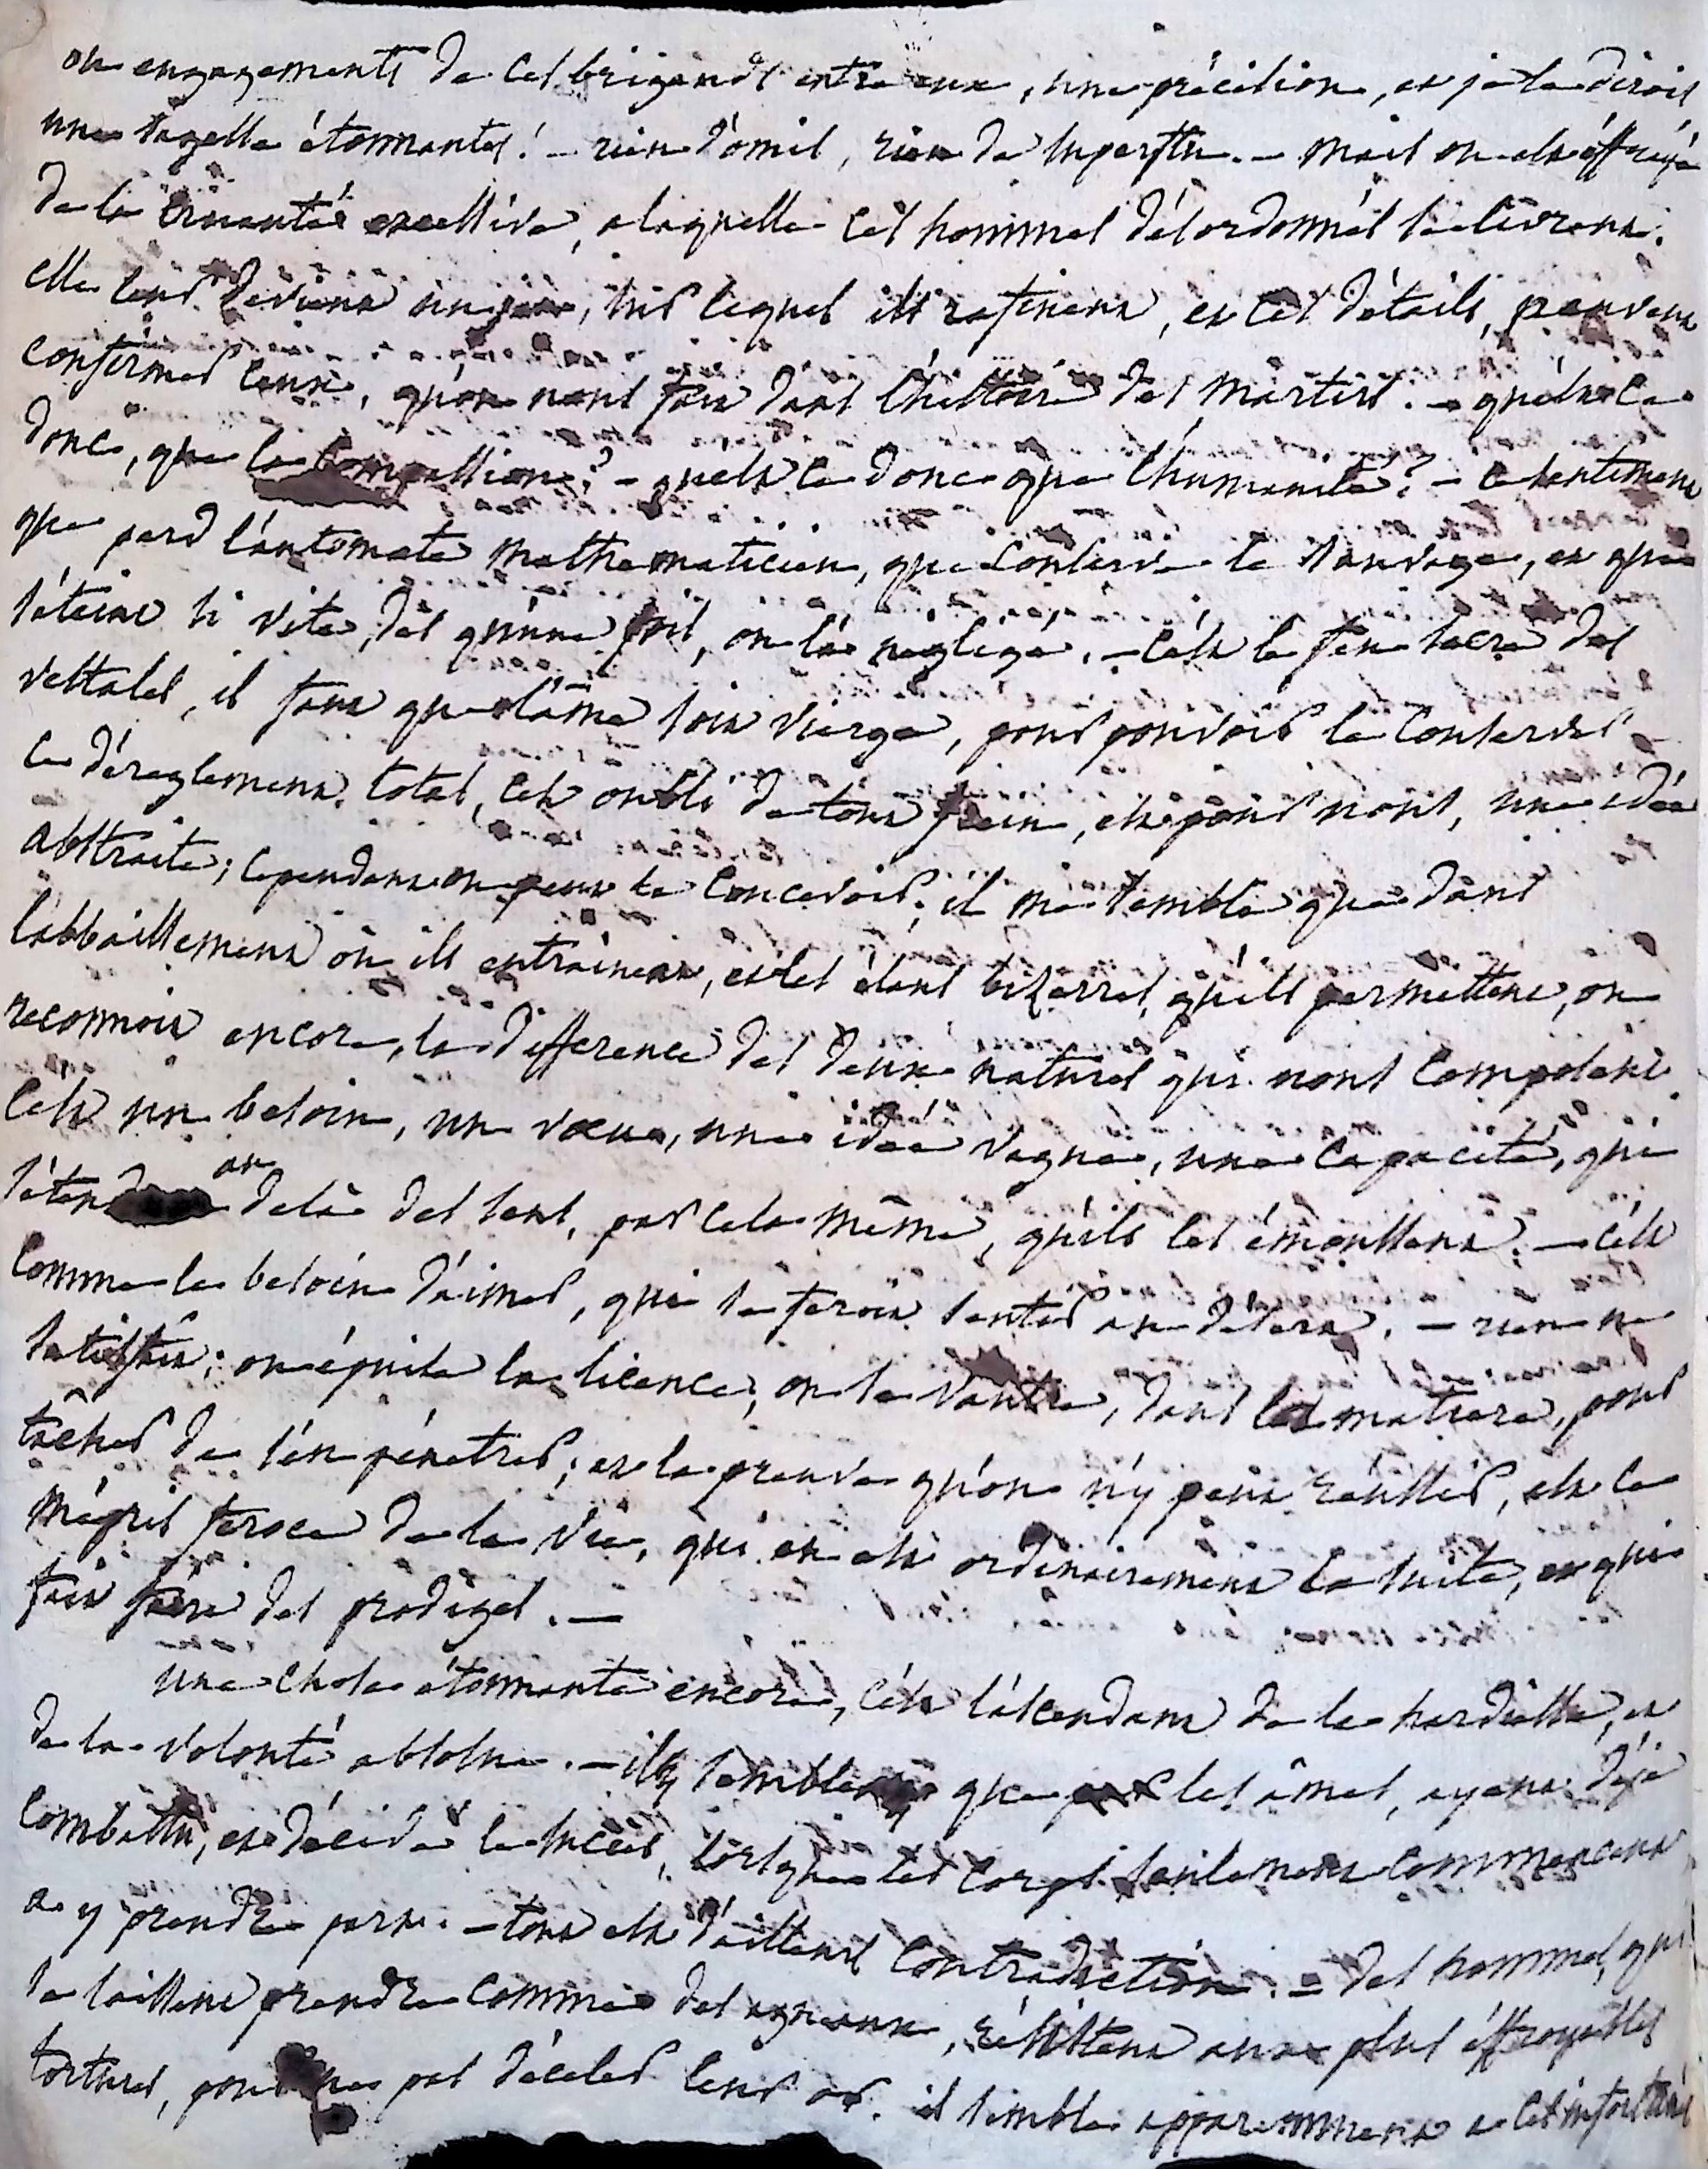 ou engagements de ces brigands entre eux, une précision, et je le dirois
une sagesse étonnantes! - rien d'omis, rien de superflu. - mais on est éffrayé
de la cruauté excessive, a laquelle ces hommes désordonnés se livrent.
elle leur devient un jeu, sur lequel ils rafinent, et ces détails, peuvent
confirmer ceux, qu'on nous fait dans l'histoire des martirs. - qu'est ce
donc, que la compassion? - qu'est ce donc que l'humanité? - ce sentiment
que perd l'automate mathematicien, que conserve le sauvage, et qui
s'éteint si vite, dès qu'une fois, on l'a négligé. - c'est le feu sacré des
vestales, il faut que l'âme soit vierge, pour pouvoir le conserver.
ce déreglement total, cet oubli de tout frein, est pour nous, une idée
abstraite; cependant on peut le concevoir; il me semble que dans
l'abbaissement où ils entrainent, et les élans bizarres, qu'ils permettent, on
reconnoit encore, la difference des deux natures qui nous composent.
c'est un besoin, un voeux, une idée vague, une capacité, qui
s'étend au delà des sens, par cela même, qu'ils les émoussent. - c'est
comme le besoin d'aimer, qui se feroit sentir au désert. - rien ne
satisfait; on épuise la licence, on se vautre, dans la matiere, pour
tâcher de s'en pénetrer; et la preuve qu'on n'y peut réussir, est le
mépris feroce de la vie, qui en est ordinairement la suite, et qui
fait faire des prodiges. -
une chose étonnante encore, c'est l'ascendant de la hardiesse, et
de la volonté absolue. - il semble que les âmes, ayent déjà
combattu, et décidé le succès, lorsque les corps seulement commencent
a y prendre part. - tout est d'ailleurs contradiction. - des hommes, qui
se laissent prendre comme des agneaux, résistent aux plus éffroyables
tortures, pour ne pas déceler leur or. il semble apparemment a ces infortunés